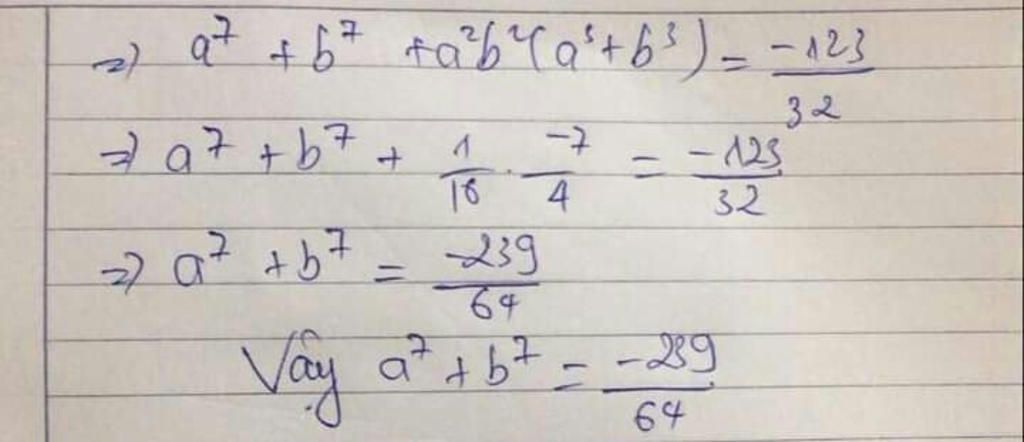 => a⁷ + b⁷ + a²b²(a³ + b³) = -123/32
=> a⁷ + b⁷ + 1/16 · -7/4 = -123/32
=> a⁷ + b⁷ = -239/64
Vậy a⁷ + b⁷ = -239/64